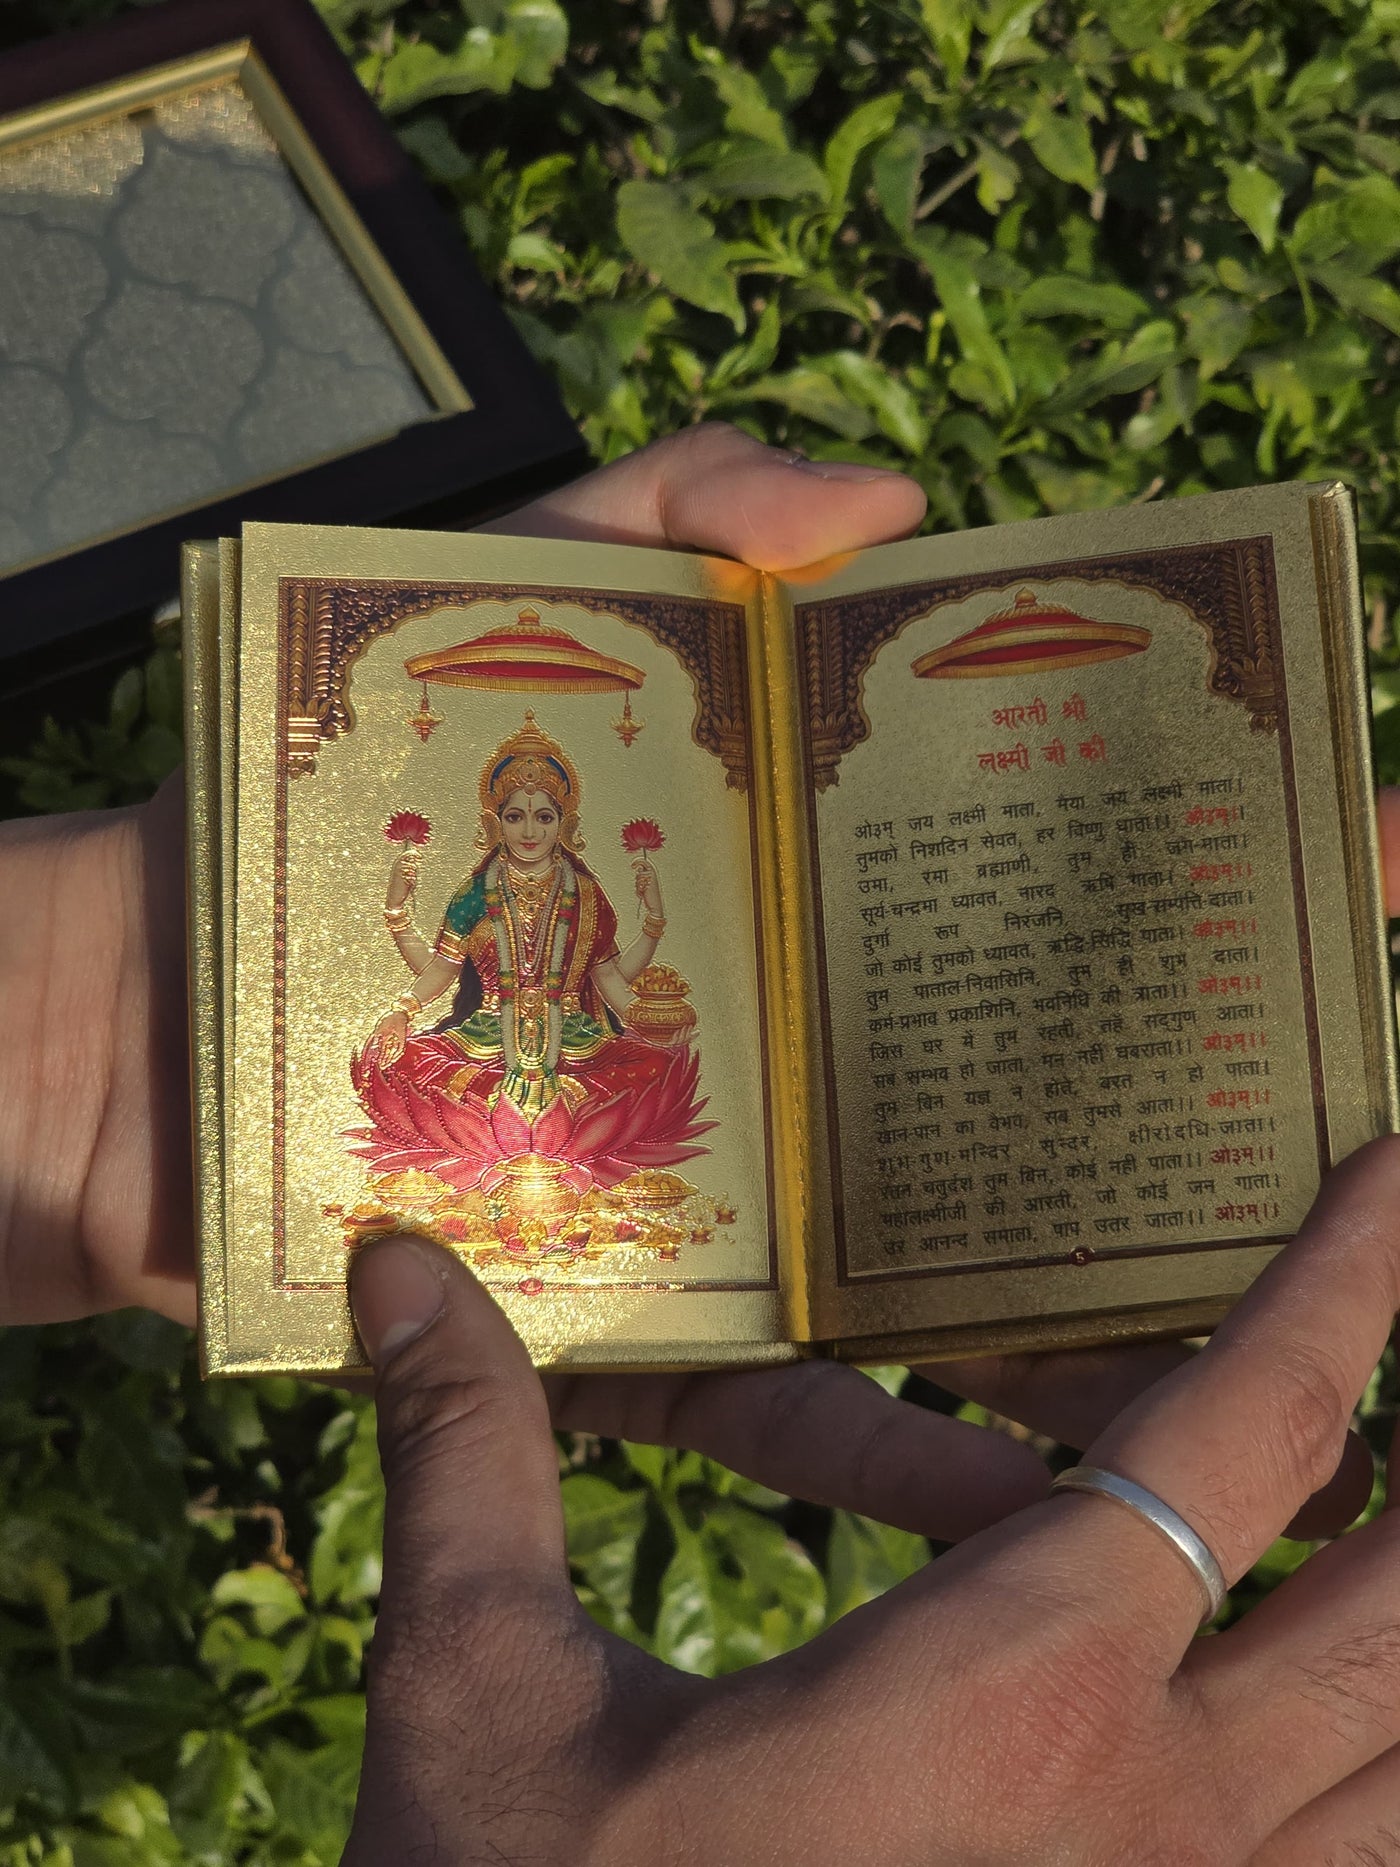 आरती श्री
लक्ष्मी जी की
ओ३म् जय लक्ष्मी माता, मैया जय लक्ष्मी माता।
तुमको निशदिन सेवत, हर विष्णु धाता।। ओ३म्।।
उमा, रमा ब्रह्माणी, तुम ही जग-माता।
सूर्य-चन्द्रमा ध्यावत, नारद ऋषि गाता। ओ३म्।।
दुर्गा रूप निरंजनि, सुख-सम्पत्ति-दाता।
जो कोई तुमको ध्यावत, ऋद्धि-सिद्धि पाता। ओ३म्।।
तुम पाताल-निवासिनि, तुम ही शुभ दाता।
कर्म-प्रभाव प्रकाशिनि, भवनिधि की त्राता।। ओ३म्।।
जिस घर में तुम रहती, तहँ सद्‌गुण आता।
सब सम्भव हो जाता, मन नहीं घबराता।। ओ३म्।।
तुम बिन यज्ञ न होते, वरत न हो पाता।
खान-पान का वैभव, सब तुमसे आता।। ओ३म्।।
शुभ-गुण-मन्दिर सुन्दर, क्षीरोदधि-जाता।
रतन चतुर्दश तुम बिन, कोई नही पाता।। ओ३म्।।
महालक्ष्मीजी की आरती, जो कोई जन गाता।
उर आनन्द समाता, पाप उतर जाता।। ओ३म्।।
5